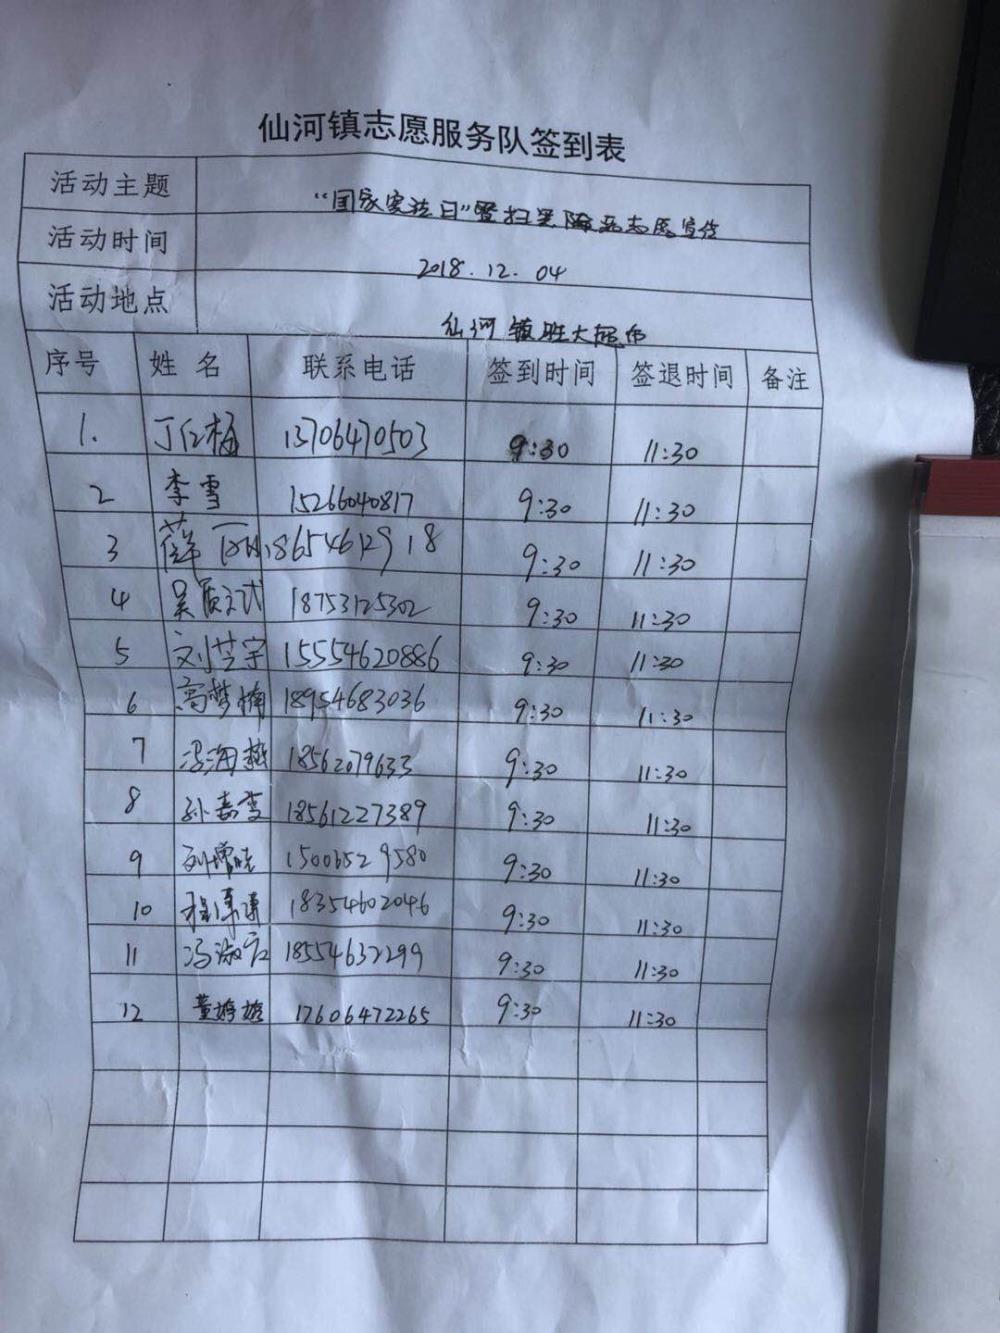 仙河镇志愿服务队签到表
活动主题 "国家宪法日"暨扫黑除恶志愿宣传
活动时间 2018.12.04
活动地点 仙河镇胜大超市
序号 姓名 联系电话 签到时间 签退时间 备注
1. 丁红梅 13706470503 9:30 11:30
2 李雪 15266040817 9:30 11:30
3 薛 18654612918 9:30 11:30
4 吴 18753125302 9:30 11:30
5 刘芝宇 15554620886 9:30 11:30
6 高梦楠 18954683036 9:30 11:30
7 冯海燕 18562079633 9:30 11:30
8 孙嘉雪 18561227389 9:30 11:30
9 刘 9580 9:30 11:30
10 程 18354602046 9:30 11:30
11 冯淑 18554632299 9:30 11:30
12 董婷婷 17606472265 9:30 11:30